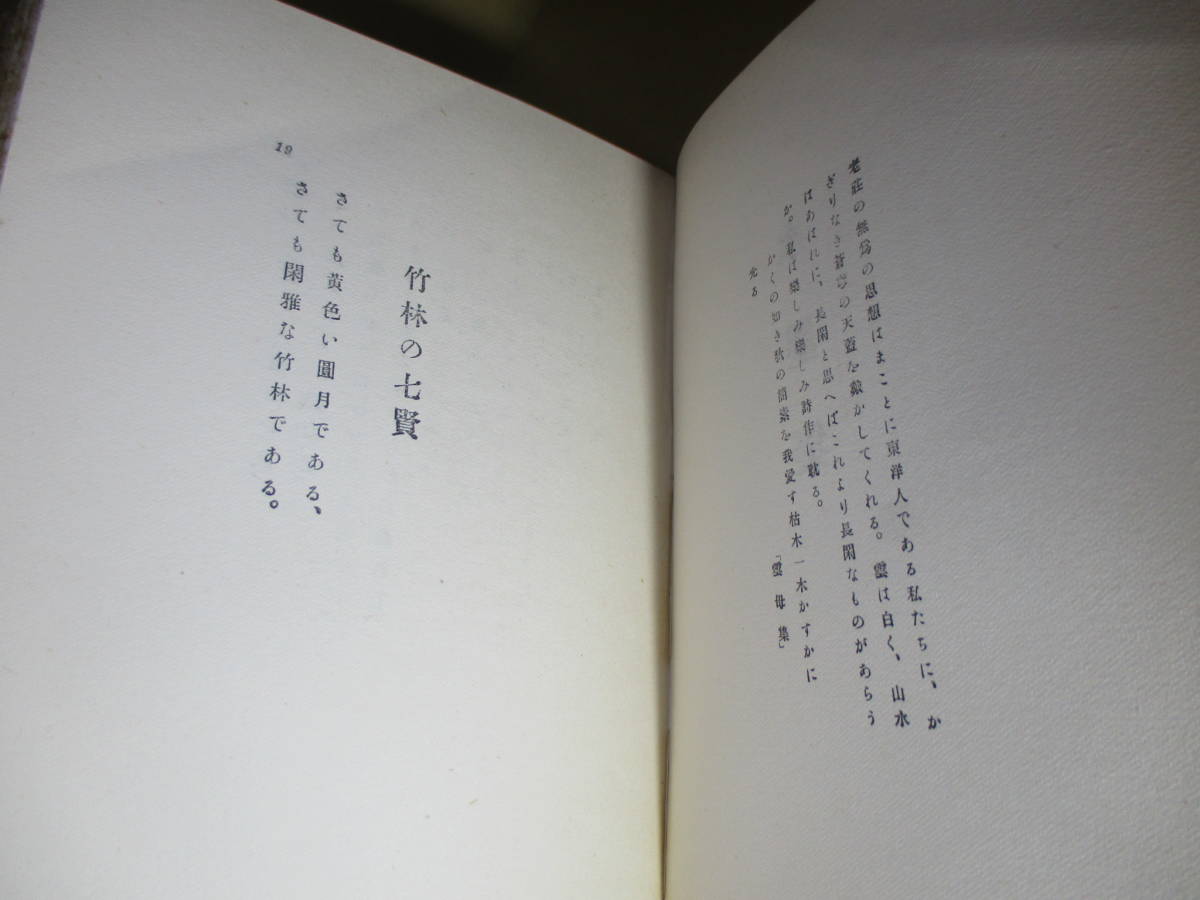 老莊の無爲の思想はまことに東洋人である私たちに、か
ぎりなき蒼穹の天蓋を披かしてくれる。雲は白く、山水
はあはれに、長閑と思へばこれより長閑なものがあらう
か。私は樂しみ樂しみ詩作に耽る。
かくの如き秋の簡素を我愛す枯木一木かすかに
光る
「雲母集」
竹林の七賢
さても黄色い圓月である、
さても閑雅な竹林である。
19